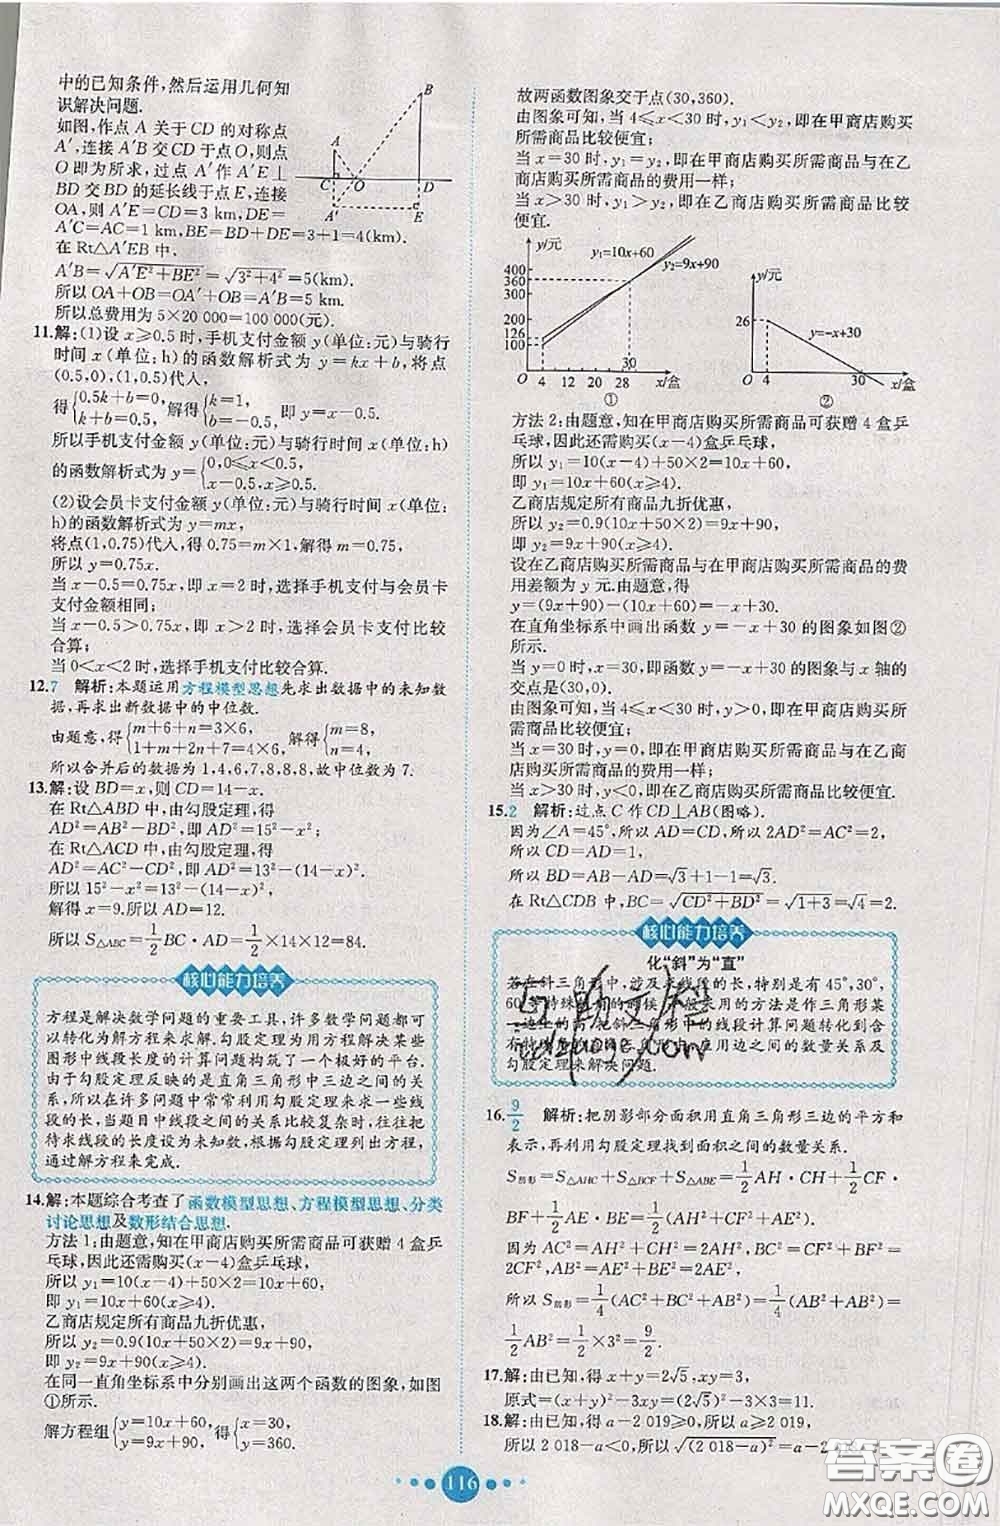 中的已知条件,然后运用几何知
识解决问题.
如图,作点 A 关于 CD 的对称点
A′,连接 A′B 交 CD 于点 O,则点
O 即为所求,过点 A′作 A′E⊥
BD 交 BD 的延长线于点 E,连接
OA,则 A′E=CD=3 km,DE=
A′C=AC=1 km,BE=BD+DE=3+1=4(km).
在 Rt△A′EB 中,
A′B=√(A′E²+BE²)=√(3²+4²)=5(km).
所以 OA+OB=OA′+OB=A′B=5(km).
所以总费用为 5×20 000=100 000(元).
B
A
C
O
D
A′
E
11.解:(1)设 x≥0.5 时,手机支付金额 y(单位:元)与骑行
时间 x(单位:h)的函数解析式为 y=kx+b,将点
(0.5,0),(1,0.5)代入,
得{0.5k+b=0, k+b=0.5, 解得{k=1, b=-0.5, 即 y=x-0.5.
所以手机支付金额 y(单位:元)与骑行时间 x(单位:h)
的函数解析式为 y={0,0≤x<0.5, x-0.5,x≥0.5.
(2)设会员卡支付金额 y(单位:元)与骑行时间 x(单位:
h)的函数解析式为 y=mx,
将点(1,0.75)代入,得 0.75=m×1,解得 m=0.75,
所以 y=0.75x.
当 x-0.5=0.75x,即 x=2 时,选择手机支付与会员卡
支付金额相同;
当 x-0.5>0.75x,即 x>2 时,选择会员卡支付比较
合算;
当 0<x<2 时,选择手机支付比较合算.
12.7 解析:本题运用方程模型思想先求出数据中的未知数
据,再求出新数据中的中位数.
由题意,得{m+6+n=3×6, 1+m+2n+7=4×6, 解得{m=8, n=4.
所以合并后的数据为 1,4,6,7,8,8,8,故中位数为 7.
13.解:设 BD=x,则 CD=14-x.
在 Rt△ABD 中,由勾股定理,得
AD²=AB²-BD²,即 AD²=15²-x²;
在 Rt△ACD 中,由勾股定理,得
AD²=AC²-CD²,即 AD²=13²-(14-x)².
所以 15²-x²=13²-(14-x)²,
解得 x=9.所以 AD=12.
所以 S△ABC=1/2 BC·AD=1/2×14×12=84.
核心能力培养
方程是解决数学问题的重要工具,许多数学问题都可
以转化为解方程来求解.勾股定理为用方程解决某些
图形中线段长度的计算问题构筑了一个极好的平台.
由于勾股定理反映的是直角三角形中三边之间的关
系,所以在许多问题中常常利用勾股定理来求一些线
段的长,当题目中线段的关系比较复杂时,往往把
待求线段的长度设为未知数,根据勾股定理列出方程,
通过解方程来完成.
14.解:本题综合考查了函数模型思想、方程模型思想、分类
讨论思想及数形结合思想.
方法 1:由题意,知在甲商店购买所需商品可获赠 4 盒乒
乓球,因此还需购买(x-4)盒乒乓球,
所以 y₁=10(x-4)+50×2=10x+60,
即 y₁=10x+60(x≥4).
乙商店规定所有商品九折优惠,
所以 y₂=0.9(10x+50×2)=9x+90,
即 y₂=9x+90(x≥4).
在同一直角坐标系中分别画出这两个函数的图象,如图
①所示.
解方程组{y=10x+60, y=9x+90, 得{x=30, y=360.
故两函数图象交于点(30,360).
由图象可知,当 4≤x<30 时,y₁<y₂,即在甲商店购买
所需商品比较便宜;
当 x=30 时,y₁=y₂,即在甲商店购买所需商品与在乙
商店购买所需商品的费用一样;
当 x>30 时,y₁>y₂,即在乙商店购买所需商品比较
便宜.
y/元
y₁=10x+60
y₂=9x+90
400
360
300
200
126
100
O 4 12 20 28 30 x/盒
①
y/元
26
y=-x+30
O 4 30 x/盒
②
方法 2:由题意,知在甲商店购买所需商品可获赠 4 盒乒
乓球,因此还需购买(x-4)盒乒乓球,
所以 y₁=10(x-4)+50×2=10x+60,
即 y₁=10x+60(x≥4).
乙商店规定所有商品九折优惠,
所以 y₂=0.9(10x+50×2)=9x+90,
即 y₂=9x+90(x≥4).
设在乙商店购买所需商品与在甲商店购买所需商品的费
用差额为 y 元.由题意,得
y=(9x+90)-(10x+60)=-x+30.
在直角坐标系中画出函数 y=-x+30 的图象如图②
所示.
当 y=0 时,x=30,即函数 y=-x+30 的图象与 x 轴的
交点是(30,0).
由图象可知,当 4≤x<30 时,y>0,即在甲商店购买所
需商品比较便宜;
当 x=30 时,y=0,即在甲商店购买所需商品与在乙商
店购买所需商品的费用一样;
当 x>30 时,y<0,即在乙商店购买所需商品比较便宜.
15.2 解析:过点 C 作 CD⊥AB(图略).
因为∠A=45°,所以 AD=CD,所以 2AD²=AC²=2,
所以 CD=AD=1,
所以 BD=AB-AD=√3+1-1=√3.
在 Rt△CDB 中,BC=√(CD²+BD²)=√(1+3)=√4=2.
核心能力培养
化“斜”为“直”
若在斜三角形中,涉及求线段的长,特别是有 45°,30°,
60°等特殊角的时候,一般采用的方法是作三角形某
一边上的高,把斜三角形中的线段计算问题转化到含
有特殊角的直角三角形中,应用边之间的数量关系及
勾股定理来解决问题.
16.9/2 解析:把阴影部分面积用直角三角形三边的平方和
表示,再利用勾股定理找到面积之间的数量关系.
S阴影=S△ACH+S△BCF+S△ABE=1/2 AH·CH+1/2 CF·
BF+1/2 AE·BE=1/2(AH²+CF²+AE²).
因为 AC²=AH²+CH²=2AH²,BC²=CF²+BF²=
2CF²,AB²=AE²+BE²=2AE²,
所以 S阴影=1/4(AC²+BC²+AB²)=1/4(AB²+AB²)=
1/2 AB²=1/2×3²=9/2.
17.解:由已知,得 x+y=2√5,xy=3,
原式=(x+y)²-3xy=(2√5)²-3×3=11.
18.解:由已知,得 a-2 019≥0,所以 a≥2 019,
所以 2 018-a<0,所以√(2 018-a)²=a-2
116
答案圈
MXQE.COM